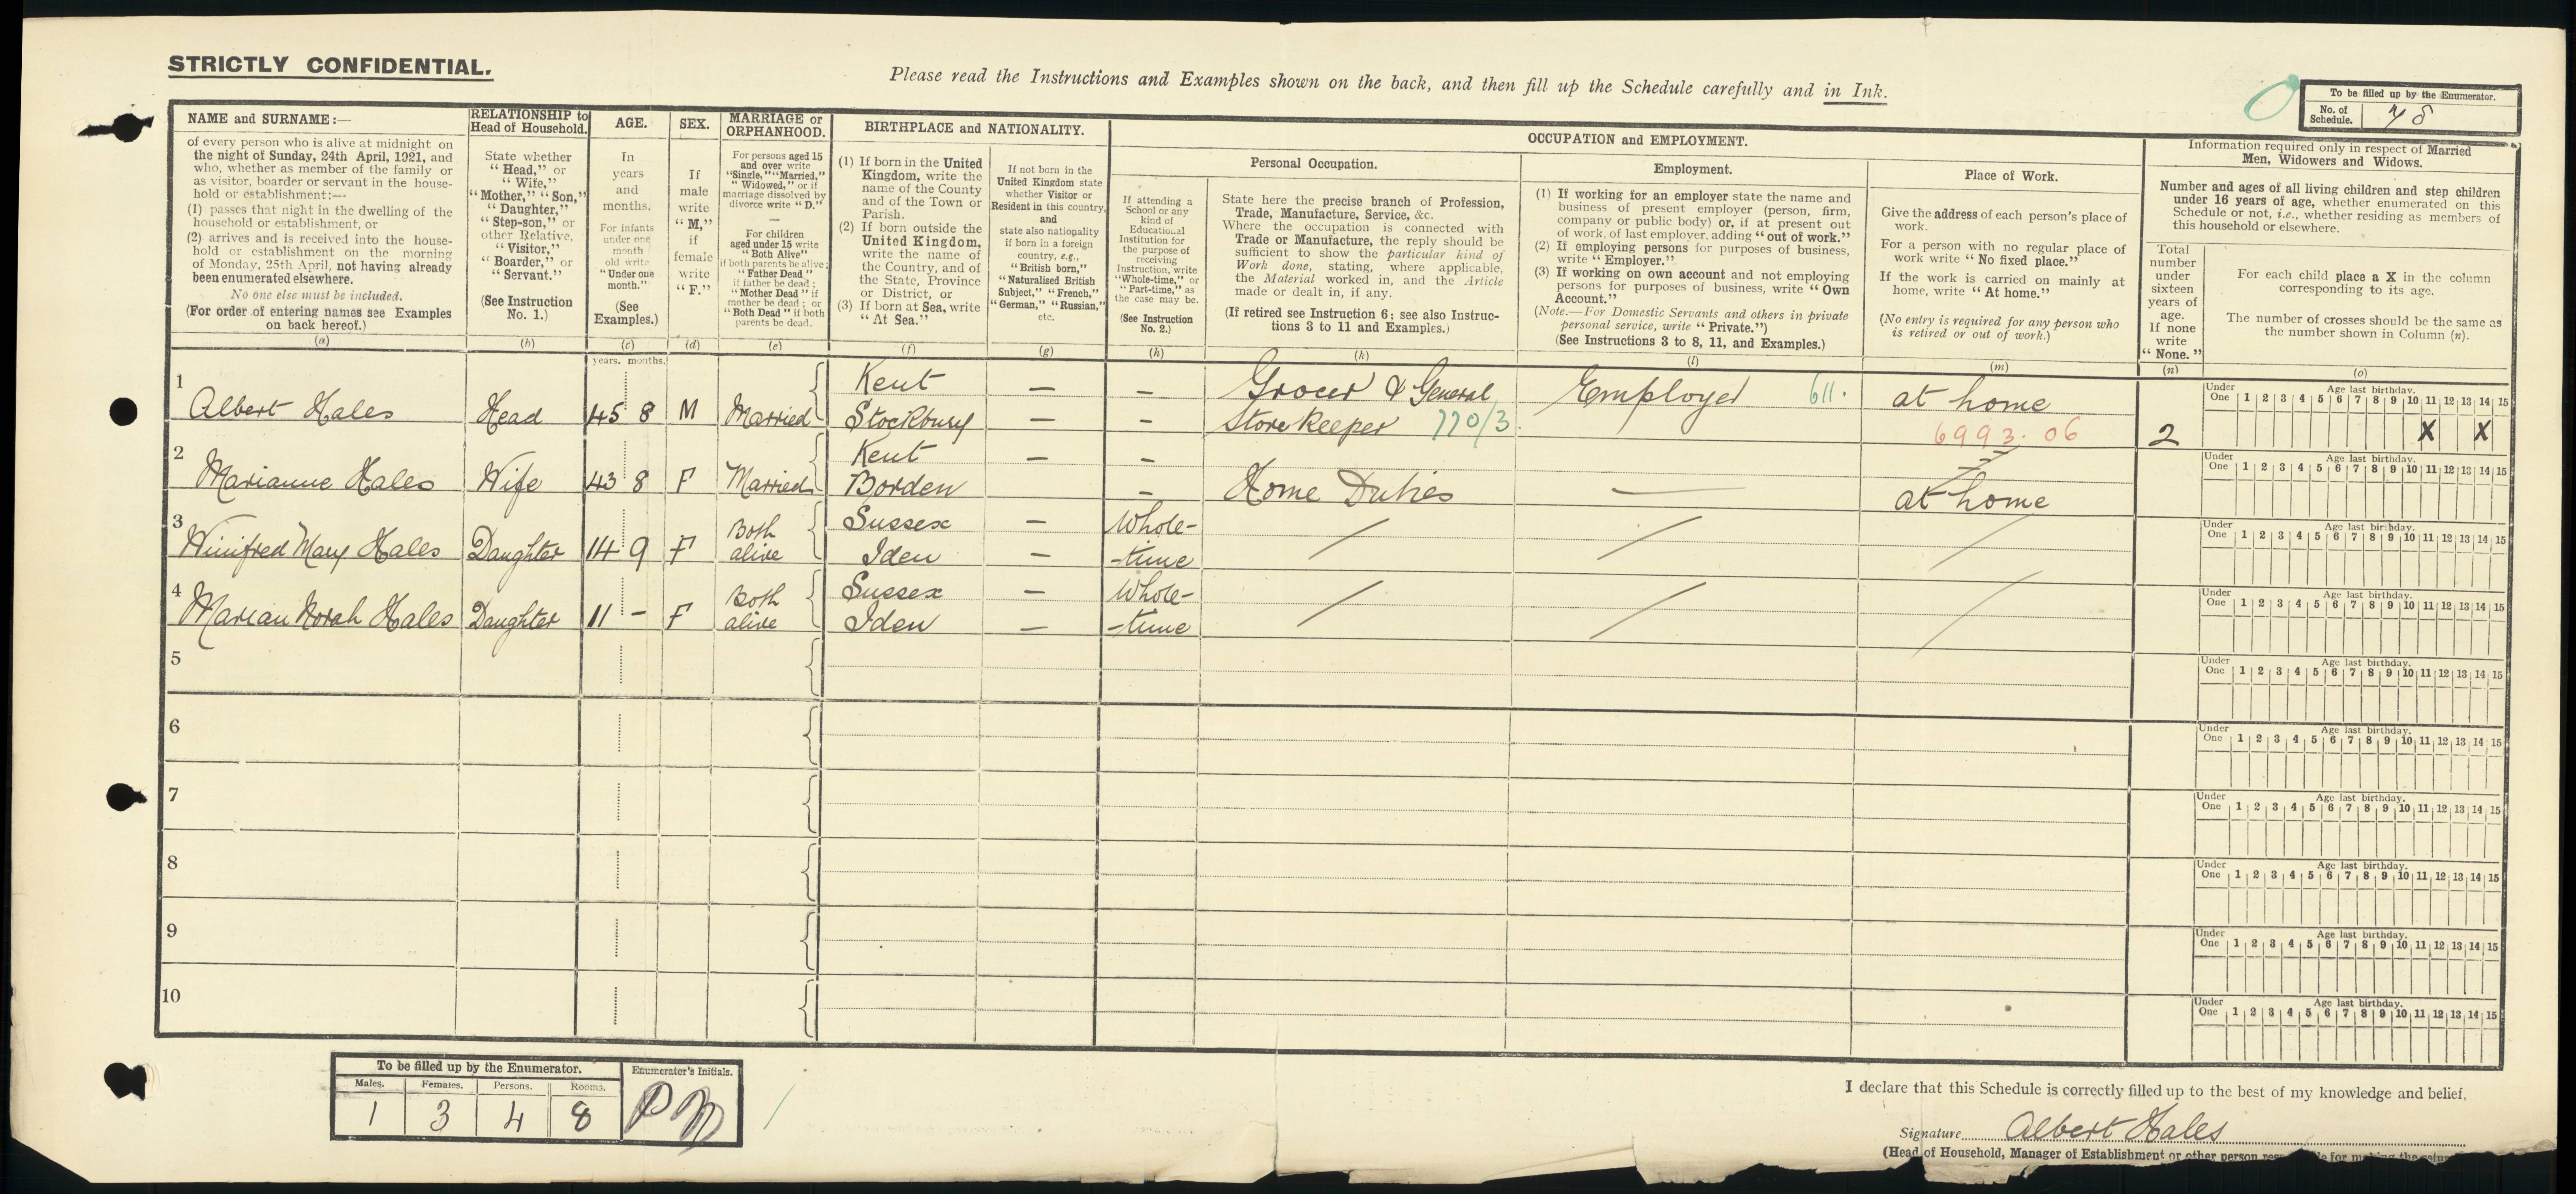 STRICTLY CONFIDENTIAL.
Please read the Instructions and Examples shown on the back, and then fill up the Schedule carefully and in Ink.
To be filled up by the Enumerator.
No. of Schedule. 78
NAME and SURNAME:—
of every person who is alive at midnight on
the night of Sunday, 24th April, 1921, and
who, whether as member of the family or
as visitor, boarder or servant in the house-
hold or establishment:—
(1) passes that night in the dwelling of the
household or establishment, or
(2) arrives and is received into the house-
hold or establishment on the morning
of Monday, 25th April, not having already
been enumerated elsewhere.
No one else must be included.
(For order of entering names see Examples
on back hereof.)
(a)
RELATIONSHIP to
Head of Household.
State whether
“Head,” or
“Wife,”
“Mother,” “Son,”
“Daughter,”
“Step-son,” or
other Relative,
“Visitor,”
“Boarder,” or
“Servant.”
(See Instruction
No. 1.)
(b)
AGE.
In
years
and
months.
For infants
under one
month
old write
“Under one
month.”
(See
Examples.)
(c)
SEX.
If
male
write
“M,”
if
female
write
“F.”
(d)
MARRIAGE or
ORPHANHOOD.
For persons aged 15
and over write
“Single,” “Married,”
“Widowed,” or if
marriage dissolved by
divorce write “D.”
—
For children
aged under 15 write
“Both Alive”
if both parents be alive;
“Father Dead”
if father be dead;
“Mother Dead” if
mother be dead; or
“Both Dead” if both
parents be dead.
(e)
BIRTHPLACE and NATIONALITY.
(1) If born in the United
Kingdom, write the
name of the County
and of the Town or
Parish.
(2) If born outside the
United Kingdom,
write the name of
the Country, and of
the State, Province
or District, or
(3) If born at Sea, write
“At Sea.”
(f)
If not born in the
United Kingdom state
whether Visitor or
Resident in this country,
and
state also nationality
if born in a foreign
country, e.g.,
“British born,”
“Naturalised British
Subject,” “French,”
“German,” “Russian,”
etc.
(g)
OCCUPATION and EMPLOYMENT.
Personal Occupation.
If attending a
School or any
kind of
Educational
Institution for
the purpose of
receiving
Instruction, write
“Whole-time,” or
“Part-time,” as
the case may be.
(See Instruction
No. 2.)
(h)
State here the precise branch of Profession,
Trade, Manufacture, Service, &c.
Where the occupation is connected with
Trade or Manufacture, the reply should be
sufficient to show the particular kind of
Work done, stating, where applicable,
the Material worked in, and the Article
made or dealt in, if any.
(If retired see Instruction 6; see also Instruc-
tions 3 to 11 and Examples.)
(k)
Employment.
(1) If working for an employer state the name and
business of present employer (person, firm,
company or public body) or, if at present out
of work, of last employer, adding “out of work.”
(2) If employing persons for purposes of business,
write “Employer.”
(3) If working on own account and not employing
persons for purposes of business, write “Own
Account.”
(Note.—For Domestic Servants and others in private
personal service, write “Private.”)
(See Instructions 3 to 8, 11, and Examples.)
(l)
Place of Work.
Give the address of each person's place of
work.
For a person with no regular place of
work write “No fixed place.”
If the work is carried on mainly at
home, write “At home.”
(No entry is required for any person who
is retired or out of work.)
(m)
Information required only in respect of Married
Men, Widowers and Widows.
Number and ages of all living children and step children
under 16 years of age, whether enumerated on this
Schedule or not, i.e., whether residing as members of
this household or elsewhere.
Total
number
under
sixteen
years of
age.
If none
write
“None.”
(n)
For each child place a X in the column
corresponding to its age.
The number of crosses should be the same as
the number shown in Column (n).
(o)
years. months.
1 Albert Hales Head 45 8 M Married Kent Stockbury — — — — Grocer & General Store Keeper 770/3. Employer 611. at home 6993.06 2
Under One Age last birthday. 1 2 3 4 5 6 7 8 9 10 11 12 13 14 15
X X
2 Marianne Hales Wife 43 8 F Married Kent Borden — — — Home Duties — at home
Under One Age last birthday. 1 2 3 4 5 6 7 8 9 10 11 12 13 14 15
3 Winifred Mary Hales Daughter 14 9 F Both alive Sussex Iden — — Whole-time / / /
Under One Age last birthday. 1 2 3 4 5 6 7 8 9 10 11 12 13 14 15
4 Marian Norah Hales Daughter 11 - F Both alive Sussex Iden — — Whole-time / / /
Under One Age last birthday. 1 2 3 4 5 6 7 8 9 10 11 12 13 14 15
5
Under One Age last birthday. 1 2 3 4 5 6 7 8 9 10 11 12 13 14 15
6
Under One Age last birthday. 1 2 3 4 5 6 7 8 9 10 11 12 13 14 15
7
Under One Age last birthday. 1 2 3 4 5 6 7 8 9 10 11 12 13 14 15
8
Under One Age last birthday. 1 2 3 4 5 6 7 8 9 10 11 12 13 14 15
9
Under One Age last birthday. 1 2 3 4 5 6 7 8 9 10 11 12 13 14 15
10
Under One Age last birthday. 1 2 3 4 5 6 7 8 9 10 11 12 13 14 15
To be filled up by the Enumerator.
Males. Females. Persons. Rooms.
1 3 4 8
Enumerator's Initials.
I declare that this Schedule is correctly filled up to the best of my knowledge and belief.
Signature Albert Hales
(Head of Household, Manager of Establishment or other person